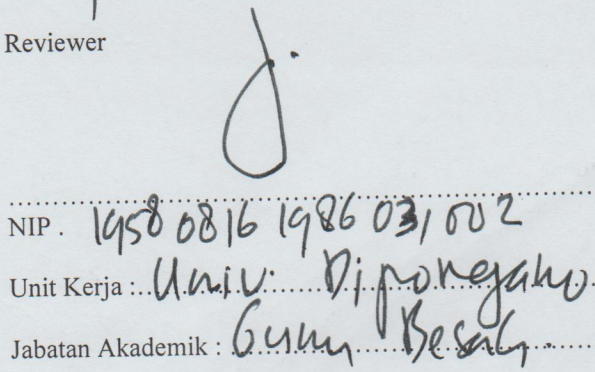 Reviewer
NIP . 19580816 198603 1 002
Unit Kerja : Univ. Diponegoro.
Jabatan Akademik : Guru Besar.